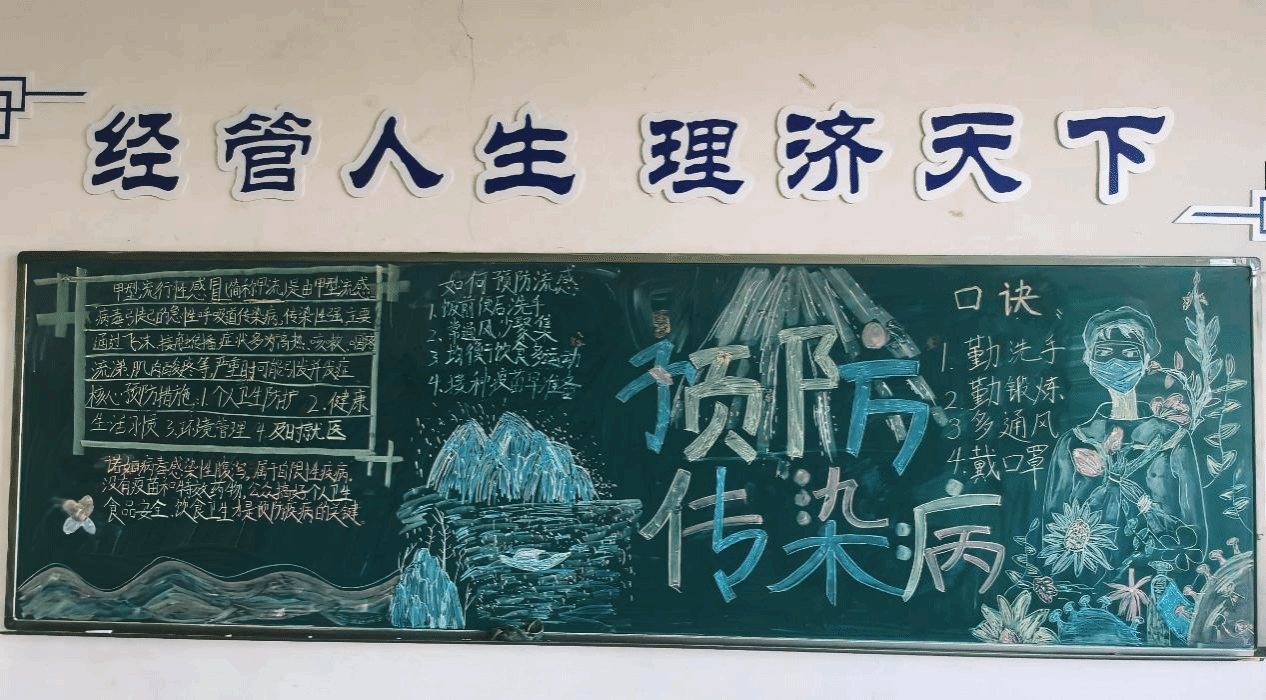 经管人生 理济天下
甲型流行性感冒(简称甲流)是由甲型流感
病毒引起的急性呼吸道传染病,传染性强,主要
通过飞沫、接触传播,症状多为高热、咳嗽、咽痛
流涕、肌肉酸疼等,严重时可能引发并发症
核心预防措施:1.个人卫生防护 2.健康
生活习惯 3.环境管理 4.及时就医
诺如病毒感染性腹泻,属于自限性疾病,
没有疫苗和特效药物,公众搞好个人卫生
食品安全、饮食卫生才是预防疾病的关键
如何预防流感
1.饭前便后洗手
2.常通风少聚集
3.均衡饮食多运动
4.接种疫苗早准备
预防
传染病
口诀:
1.勤洗手
2.勤锻炼
3.多通风
4.戴口罩